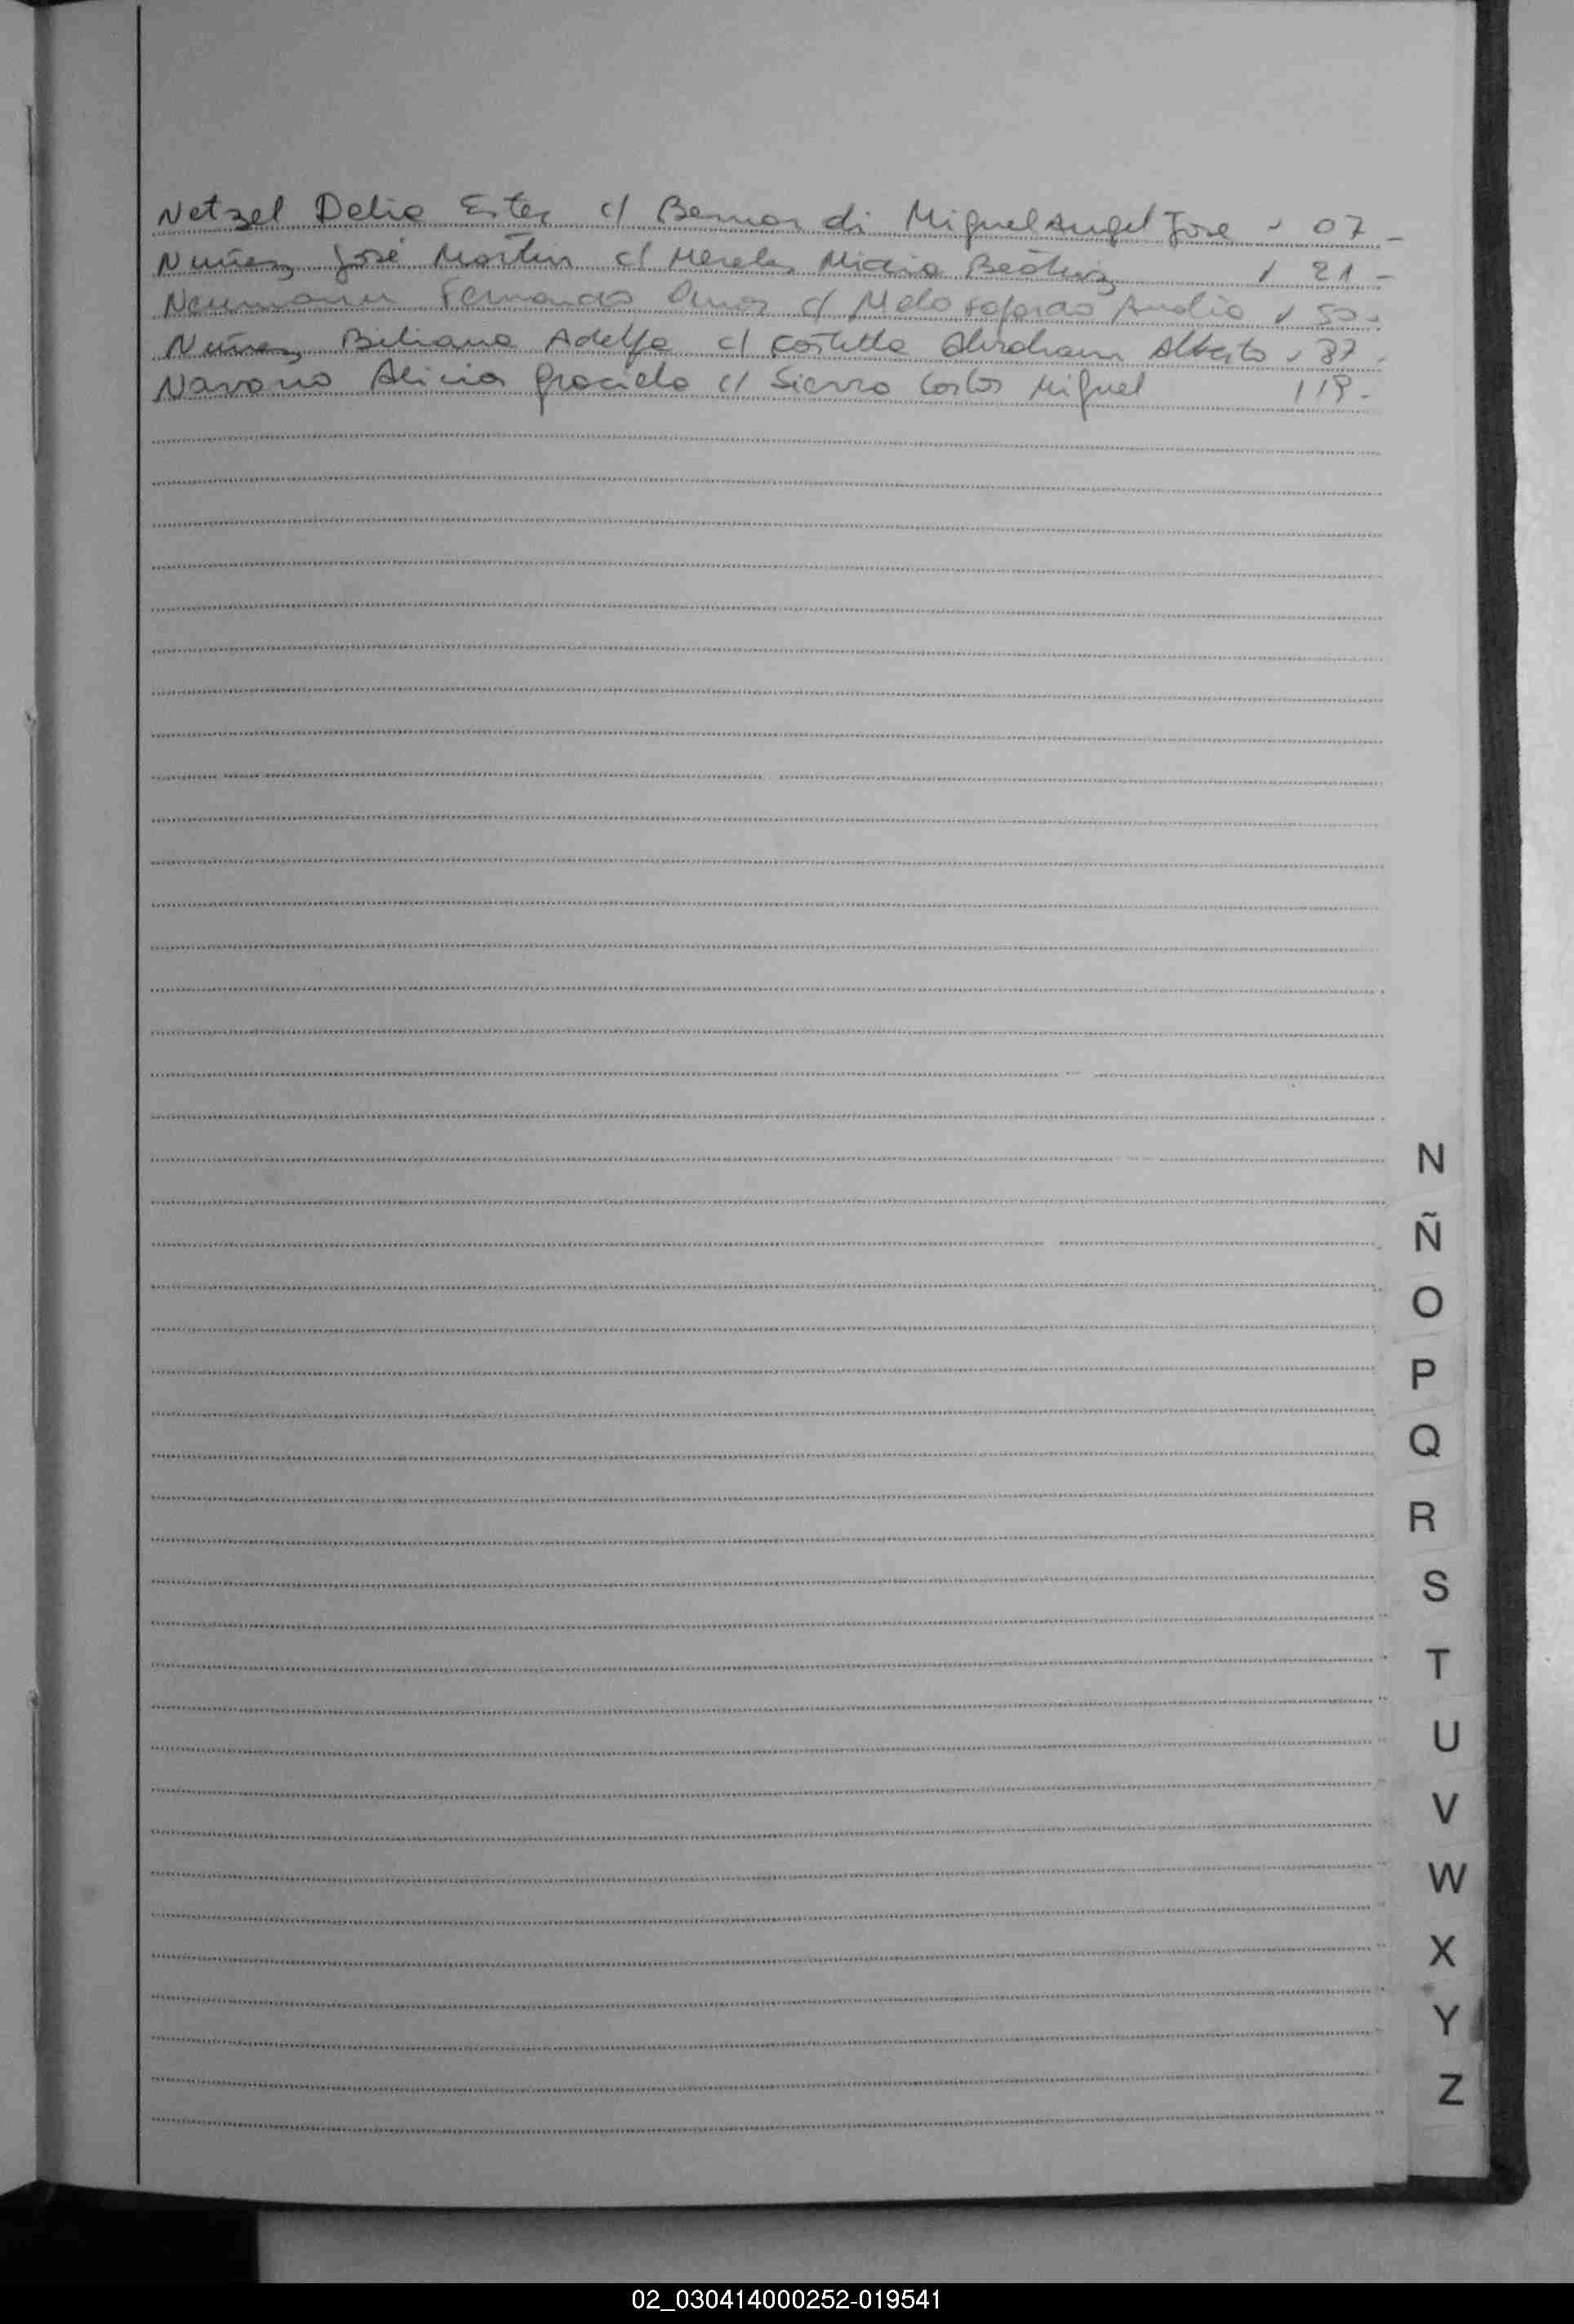 Netzel Delia Ester c/ Bernardi Miguel Angel Jose - 07 -
Nuñez José Martin c/ Mereles Beatriz / 21 -
Neumann Fernando Omar c/ Melo Analia
Nuñez Biliana Adelfa c/ Costilla Abraham Alberto - 87 -
Navarro Alicia Graciela c/ Sierra Carlos Miguel
N
Ñ
O
P
Q
R
S
T
U
V
W
X
Y
Z
02_030414000252-019541